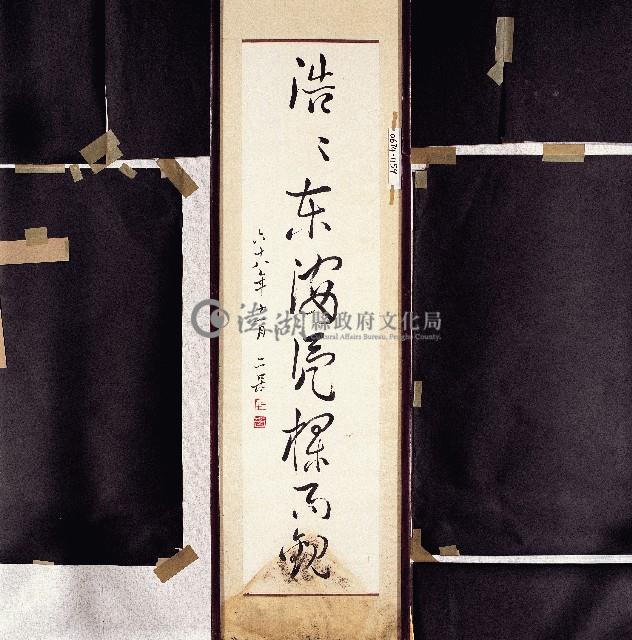 浩〻东海而观
六十八年 月 二呆
澎湖縣政府文化局
Cultural Affairs Bureau, Penghu County.